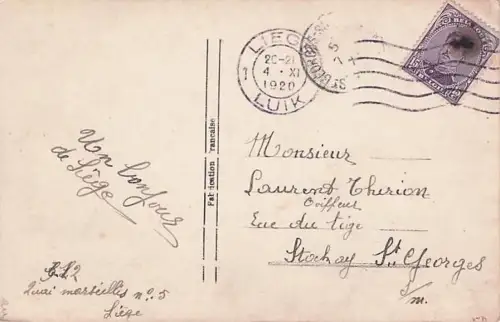 LIEGE
1
20-21
4 • XI
1920
LUIK
BELGIQUE
Un bonjour
de Liège
Quai marseillis n° 5
Liège
Fabrication francaise
Monsieur
Laurent Thirion
Coiffeur
Rue du tige
Stockay St Georges
s/m.